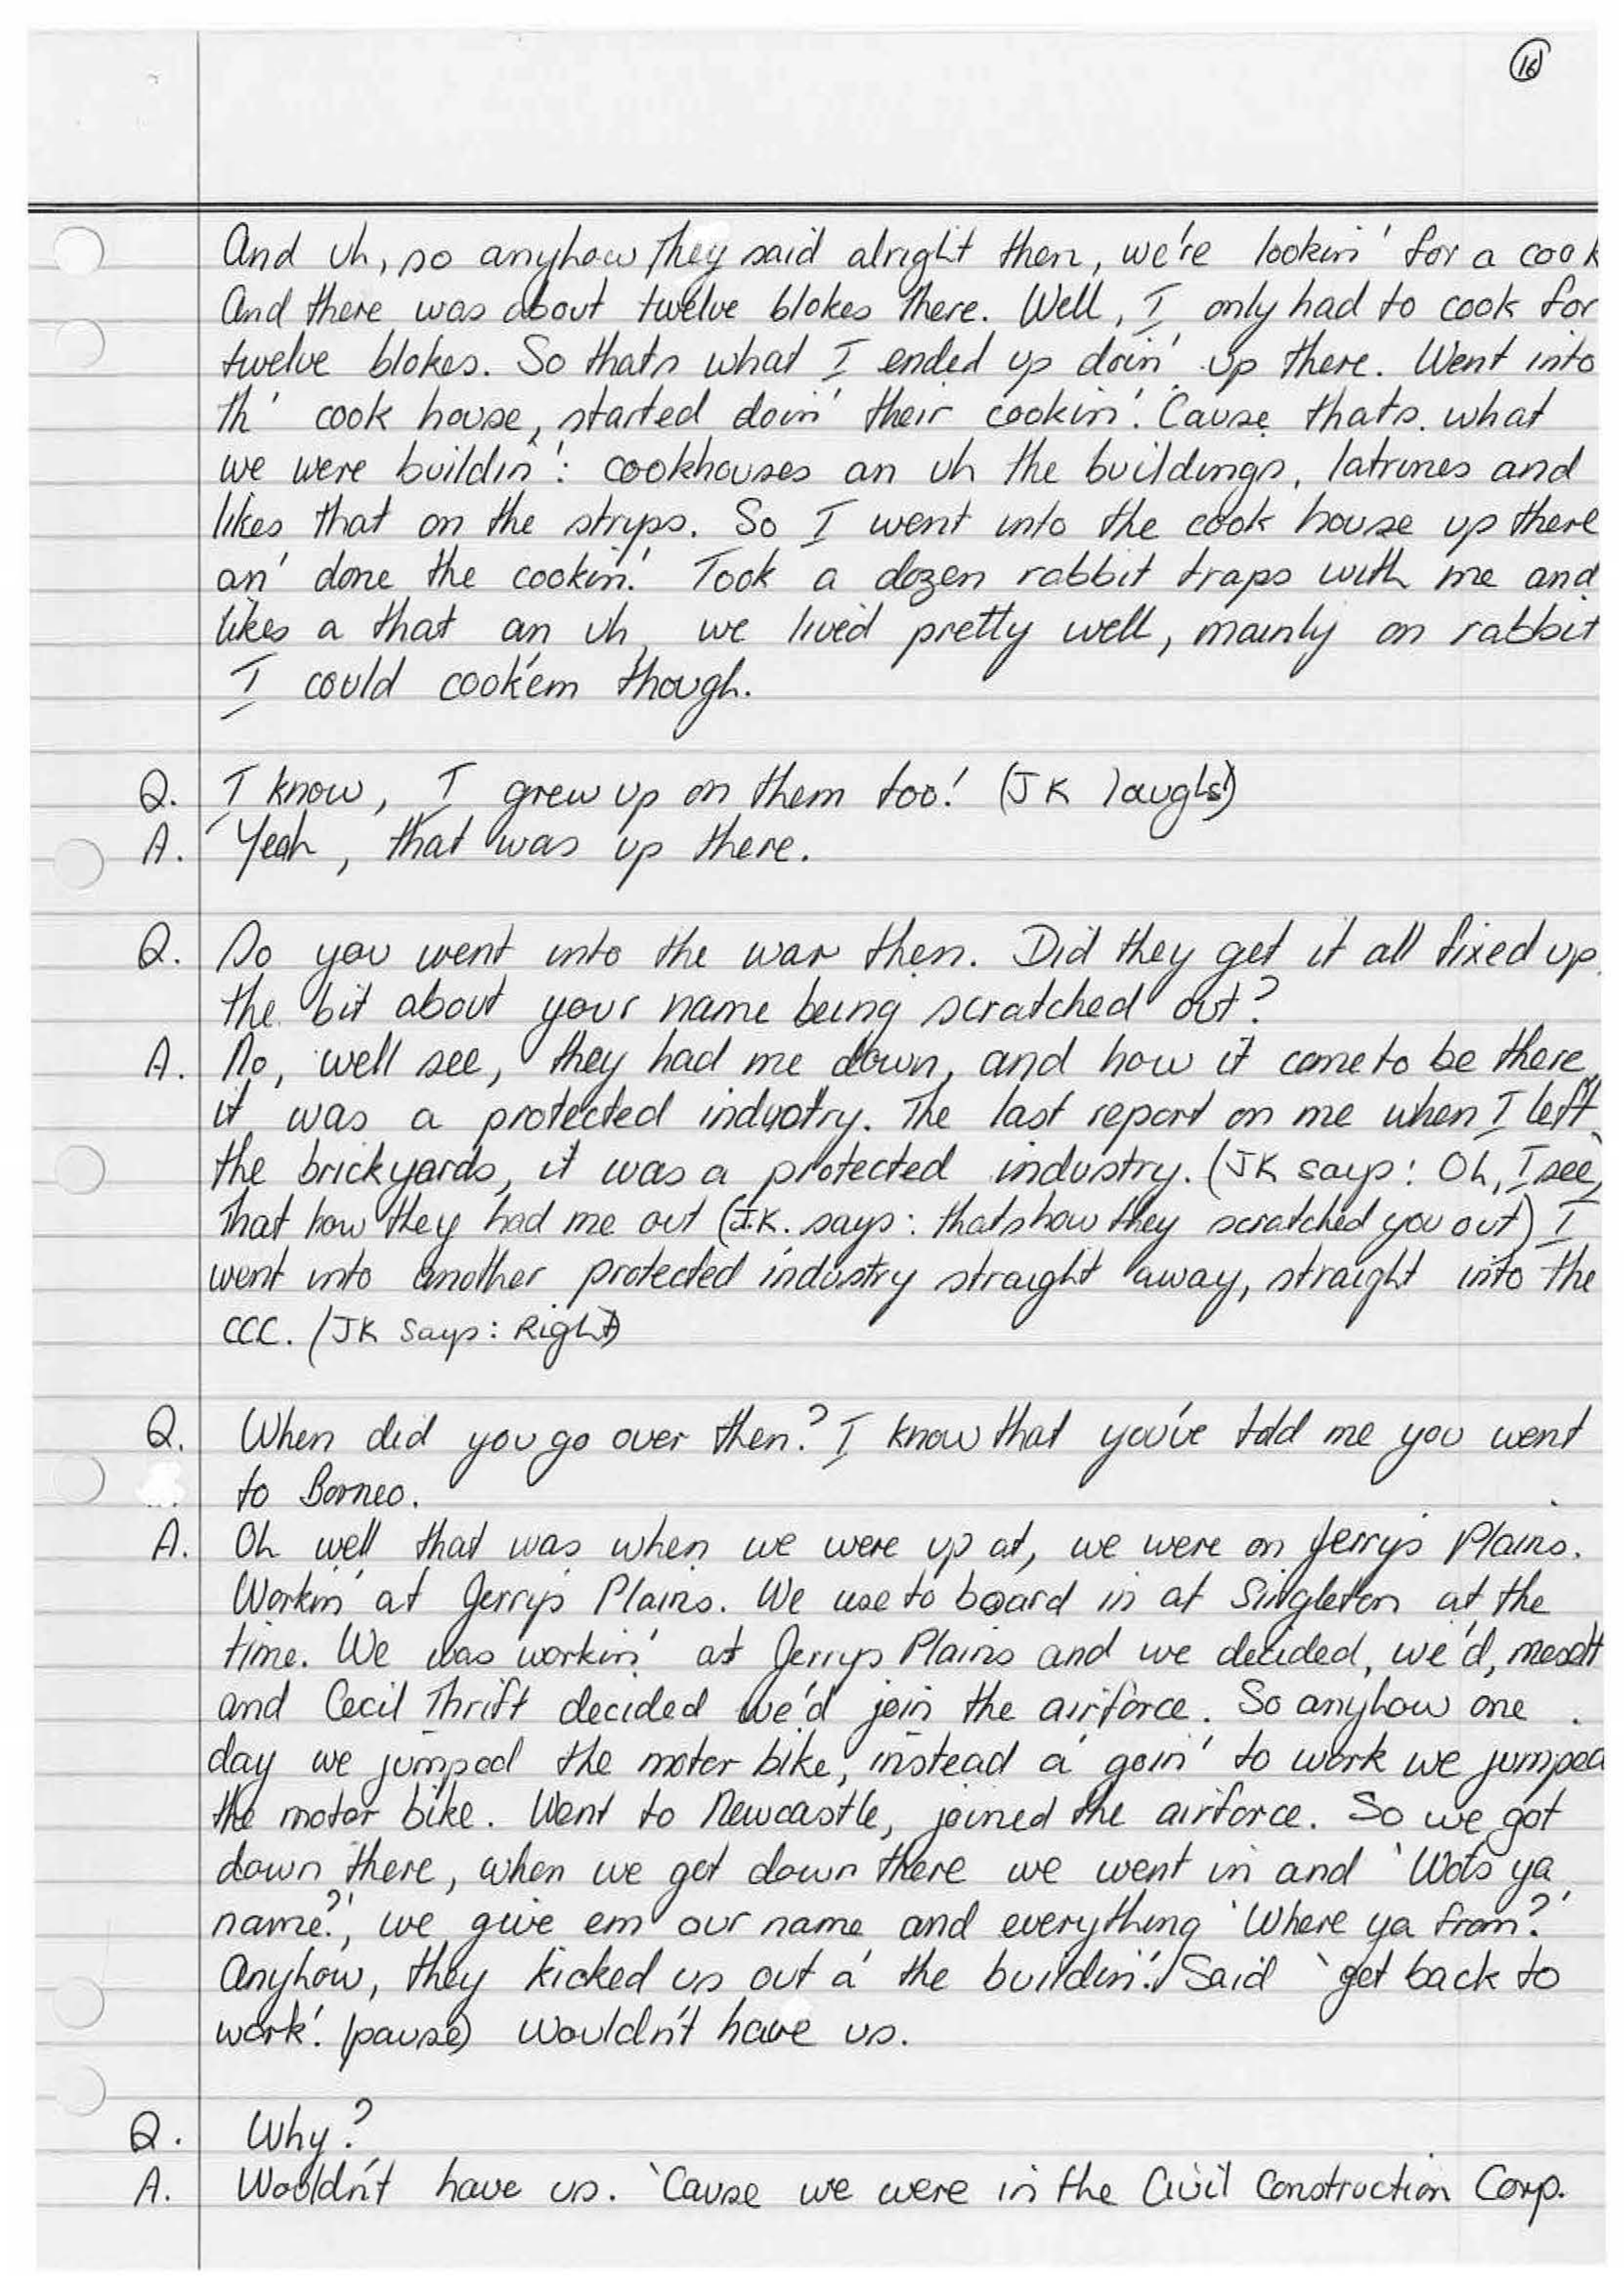 16
And uh, so anyhow they said alright then, we're lookin' for a cook
And there was about twelve blokes there. Well, I only had to cook for
twelve blokes. So thats what I ended up doin' up there. Went into
th' cook house, started doin' their cookin'. 'Cause thats what
we were buildin': cookhouses an uh the buildings, latrines and
likes that on the strips. So I went into the cook house up there
an' done the cookin'. Took a dozen rabbit traps with me and
likes a that an uh, we lived pretty well, mainly on rabbit
I could cook'em though.
Q. I know, I grew up on them too! (JK laughs)
A. Yeah, that was up there.
Q. So you went into the war then. Did they get it all fixed up,
the bit about your name being scratched out?
A. No, well see, they had me down, and how it come to be there,
it was a protected industry. The last report on me when I left
the brickyards, it was a protected industry. (JK says: Oh, I see)
That how they had me out (J.K. says: thats how they scratched you out) I
went into another protected industry straight away, straight into the
CCC. (JK says: Right)
Q. When did you go over then? I know that you've told me you went
to Borneo.
A. Oh well that was when we were up at, we were on Jerry's Plains.
Workin' at Jerry's Plains. We use to board in at Singleton at the
time. We was workin' at Jerrys Plains and we decided, we'd, meself
and Cecil Thrift decided we'd join the airforce. So anyhow one
day we jumped the motor bike, instead a' goin' to work we jumped
the motor bike. Went to Newcastle, joined the airforce. So we got
down there, when we got down there we went in and 'Wots ya
name?', we give em our name and everything 'Where ya from?'
Anyhow, they kicked us out a' the buildin'. Said 'get back to
work'. (pause) Wouldn't have us.
Q. Why?
A. Wouldn't have us. 'Cause we were in the Civil Construction Corp.